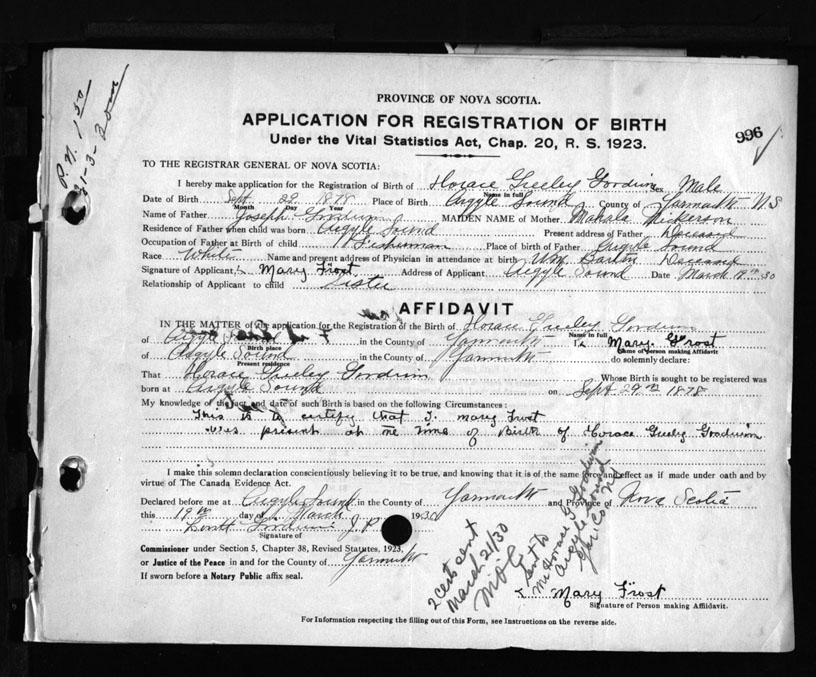 PROVINCE OF NOVA SCOTIA.
APPLICATION FOR REGISTRATION OF BIRTH
Under the Vital Statistics Act, Chap. 20, R. S. 1923.
996
P.N. 1 50
31-3-
TO THE REGISTRAR GENERAL OF NOVA SCOTIA:
I hereby make application for the Registration of Birth of Horace Greeley Goodwin Sex Male
Name in full
Date of Birth Sept 29 1878 Place of Birth Argyle Sound County of Yarmouth N S
Month Day Year
Name of Father Joseph Goodwin MAIDEN NAME of Mother Mahala Nickerson
Residence of Father when child was born Argyle Sound Present address of Father Deceased
Occupation of Father at Birth of child Fisherman Place of birth of Father Argyle Sound
Race White Name and present address of Physician in attendance at birth Wm Deceased
Signature of Applicant, Mary Frost Address of Applicant Argyle Sound Date March 19th 30
Relationship of Applicant to child Sister
AFFIDAVIT
IN THE MATTER of the application for the Registration of the Birth of Horace Greeley Goodwin
Name in full
of Argyle Sound in the County of Yarmouth I, Mary Frost
Birth place
Name of person making Affidavit
of Argyle Sound in the County of Yarmouth do solemnly declare:
Present residence
That Horace Greeley Goodwin Whose Birth is sought to be registered was
born at Argyle Sound on Sept 29th 1878
My knowledge of the fact and date of such Birth is based on the following Circumstances:
This is to certify that I mary Frost
was present at the time of Birth of Horace Greely Goodwin
I make this solemn declaration conscientiously believing it to be true, and knowing that it is of the same force and effect as if made under oath and by
virtue of The Canada Evidence Act.
Declared before me at Argyle Sound in the County of Yarmouth and Province of Nova Scotia
this 19th day of March 1930
Goodwin J P
Signature of
Commissioner under Section 5, Chapter 38, Revised Statutes, 1923,
or Justice of the Peace in and for the County of Yarmouth
If sworn before a Notary Public affix seal.
2 Cert sent
March 21/30
Sent to
Mr Horace G. Goodwin
Argyle Sound
Yar. Co. N.S.
Mary Frost
Signature of Person making Affidavit.
For Information respecting the filling out of this Form, see Instructions on the reverse side.